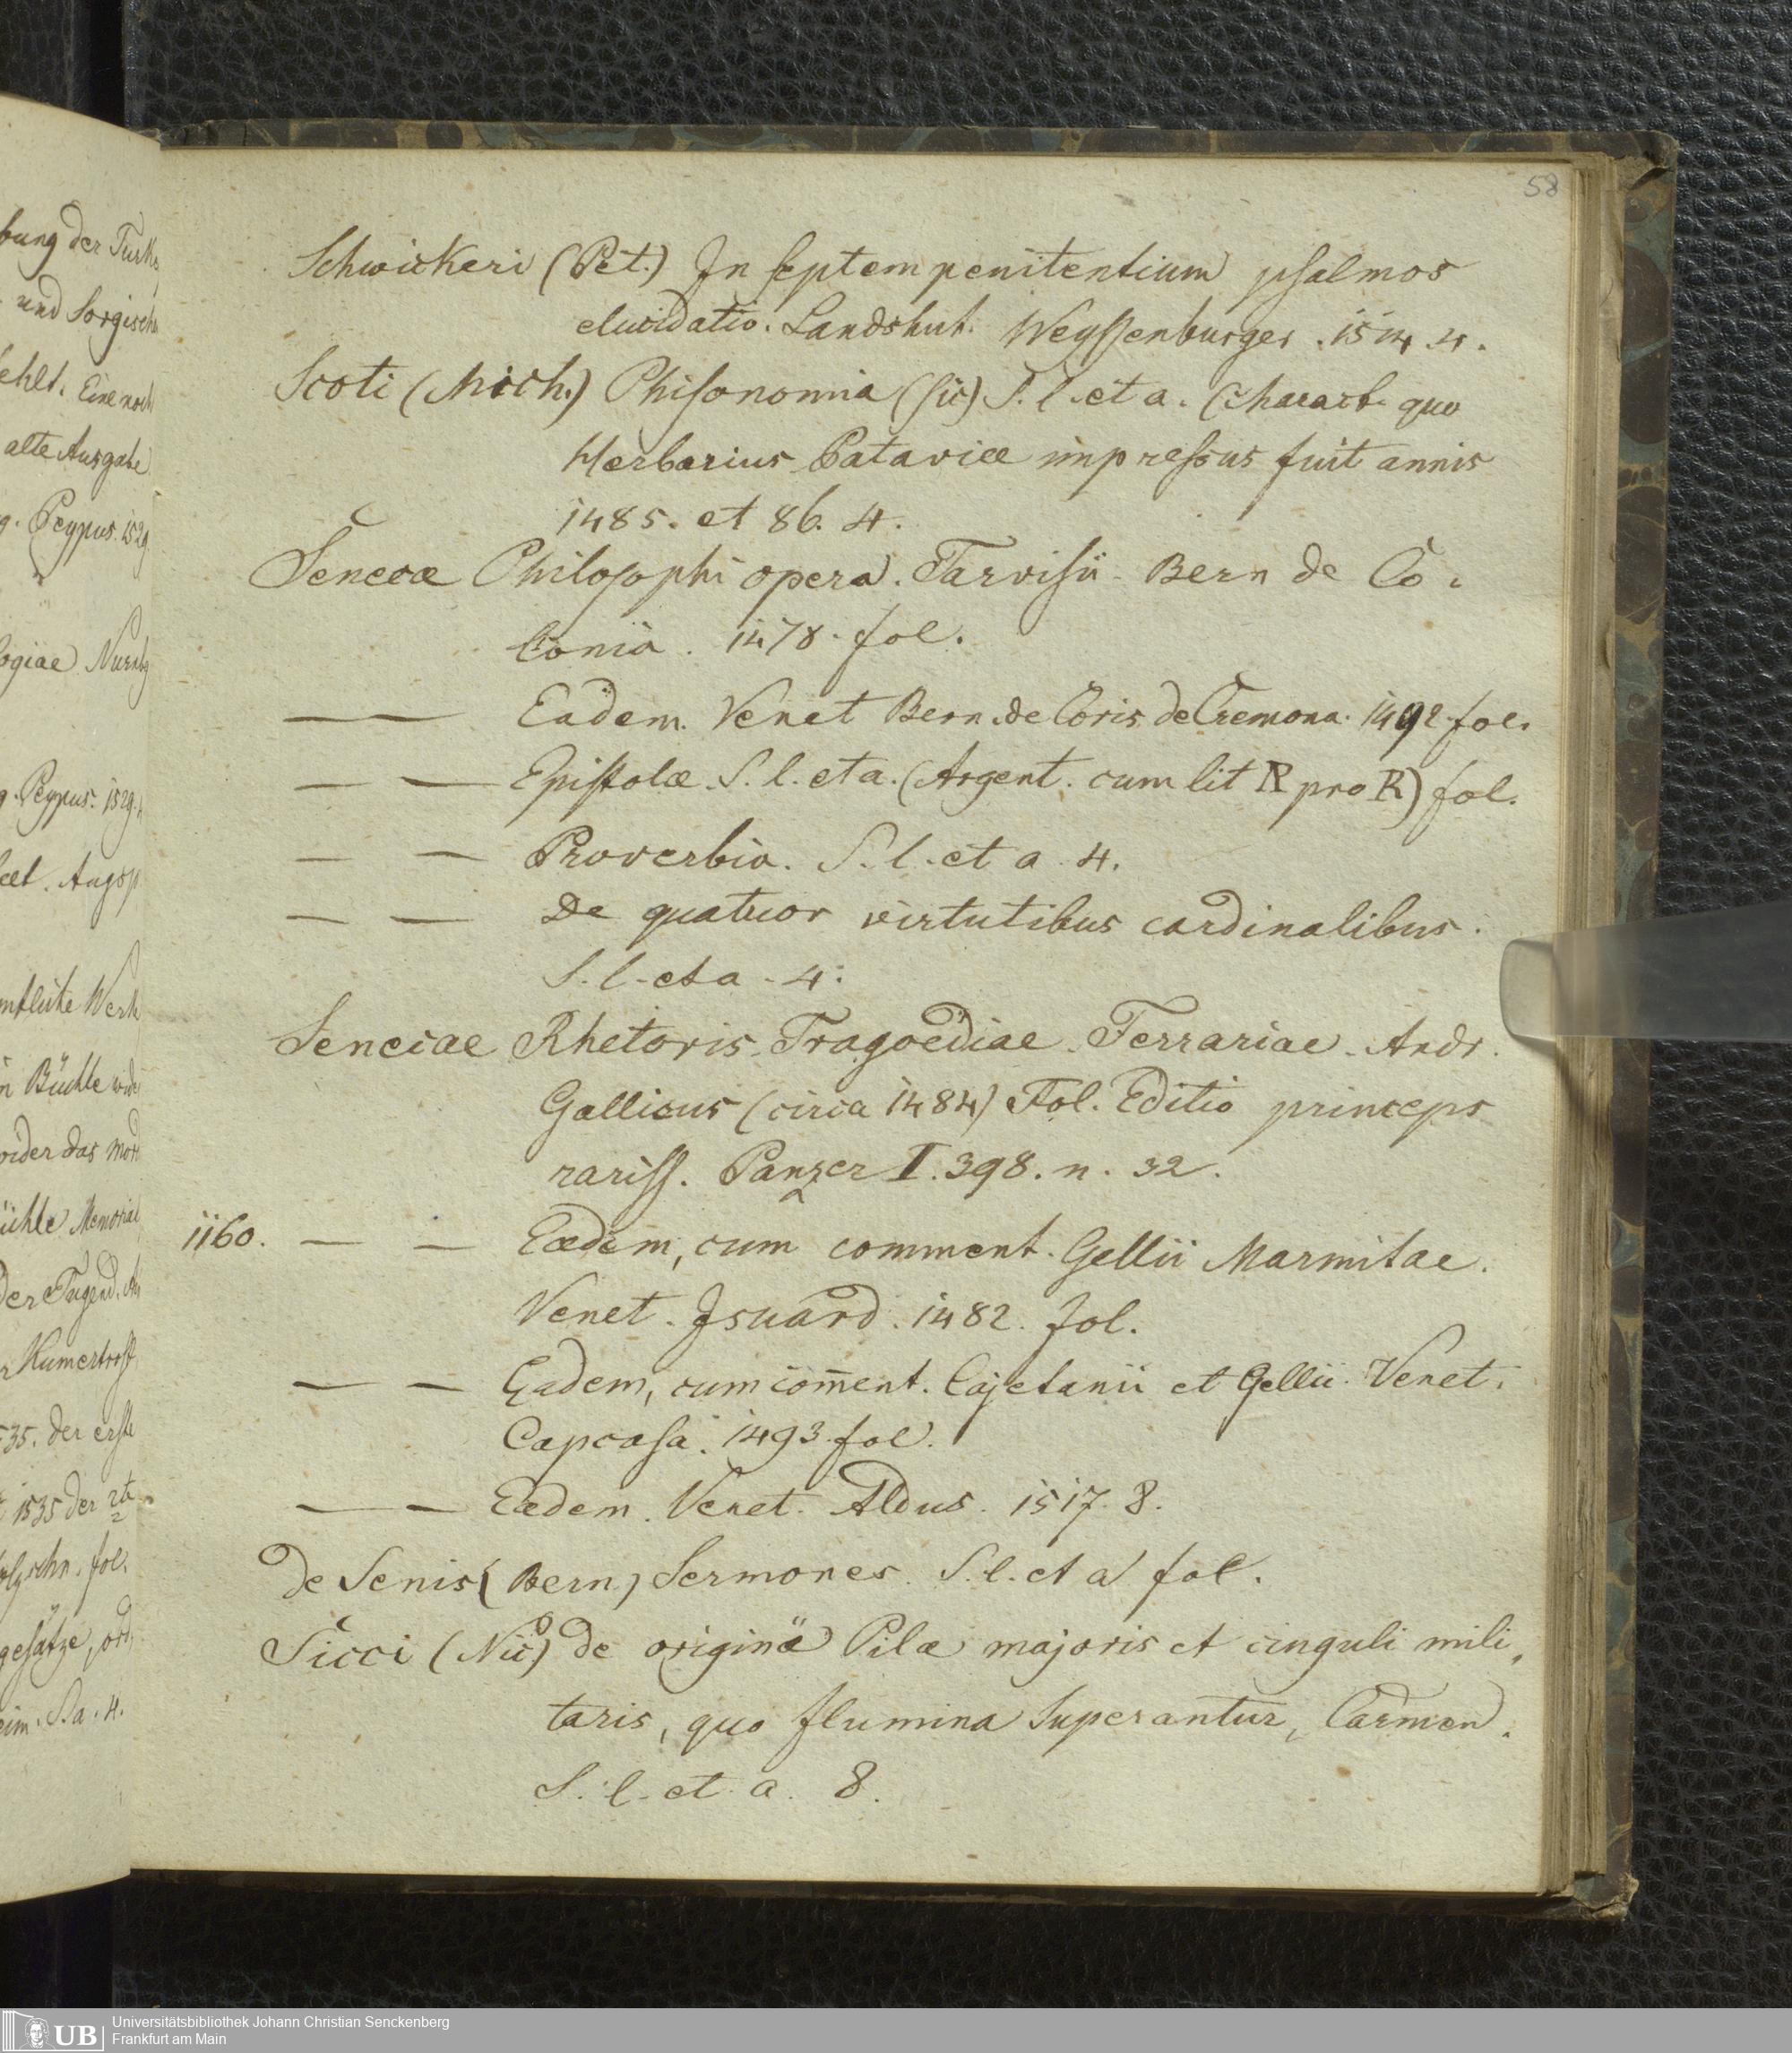 bung der Turks
und Sorgisch
fehlt. Eine noch
alte Ausgabe
g. Peypus. 1529
logiae Nurnbg
g. Peypus. 1529.
Augsp
Werk
n Büchle wide
wider das mord
üchle Memorial
der Tugend. Au
Kumertrost
535. der erste
1535 der 2te
fol.
gesätze, ord
eim. S. a. 4.
58
Schwickeri (Pet.) In septem penitentium psalmos
elucidatio. Landshut. Weyssenburger. 1514. 4.
Scoti (Mich.) Phisonomia (sic) S. l. et a. (Charact. quo
Herbarius Pataviæ impressus fuit annis
1485. et 86. 4.
Senecæ Philosophi opera. Tarvisii. Bern de Co,
lonia. 1478. fol.
— — Eadem. Venet Bern. de Coris de Cremona. 1492. fol.
— — Epistolæ. S. l. et a. (Argent. cum lit R pro R) fol.
— — Proverbia. S. l. et a. 4.
— — De quatuor virtutibus cardinalibus.
S. l. et a. 4.
Senecae Rhetoris Tragoediae. Ferrariae. Andr.
Gallicus (circa 1484) Fol. Editio princeps
rariss. Panzer I. 398. n. 32.
1160. — — Eædem, cum comment. Gellii Marmitae.
Venet. Isuard. 1482. fol.
— — Eadem, cum com̄ent. Cajetanii et Gellii. Venet.
Capcasa. 1493. fol.
— — Eædem. Venet. Aldus. 1517. 8.
de Senis (Bern.) Sermones. S. l. et a fol.
Sicci (Nic) de origine Pilæ majoris et cinguli mili,
taris, quo flumina superantur, Carmen.
S. l. et a. 8.
UB
Universitätsbibliothek Johann Christian Senckenberg
Frankfurt am Main